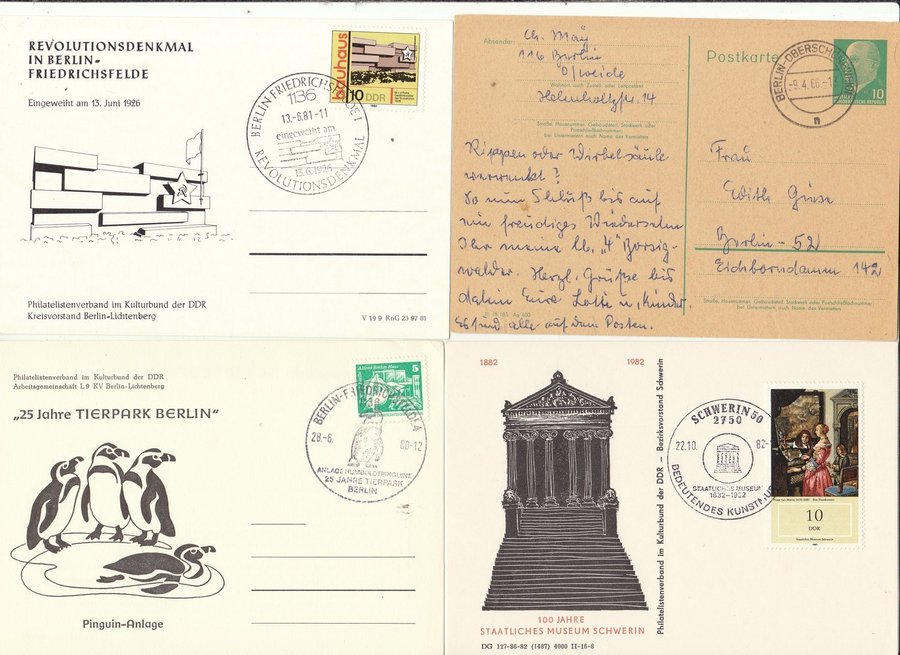 REVOLUTIONSDENKMAL
IN BERLIN-
FRIEDRICHSFELDE
Eingeweiht am 13. Juni 1926
bauhaus
10 DDR
BERLIN-FRIEDRICHSFELDE 1
1136
13.-6.81-11
eingeweiht am
13.6.1926
REVOLUTIONSDENKMAL
Philatelistenverband im Kulturbund der DDR
Kreisvorstand Berlin-Lichtenberg
V 19 9 RnG 23 97 81
Absender:
Ch. May
116 Berlin
O/weide
Wohnort, auch Zustell- oder Leitpostamt
Helmholtzstr. 14
Straße, Hausnummer, Gebäudeteil, Stockwerk oder
Postschließfachnummer;
bei Untermietern auch Name des Vermieters
Postkarte
BERLIN-OBERSCHÖNEWEIDE
-9.4.66.-1
n
10
DEUTSCHE DEMOKRATISCHE REPUBLIK
Rippen oder Wirbelsäule
verrenkt?
So nun Schluß bis auf
ein freudiges Wiedersehn
Ihr meine lb. „4" Borsig-
walder. Herzl. Grüße bis
dahin Eure Lotte u. Kinder.
Es sind alle auf dem Posten.
Frau
Edith Giese
Berlin-52
Eichborndamm 142
Straße, Hausnummer, Gebäudeteil, Stockwerk oder Postschließfachnummer;
bei Untermietern auch Name des Vermieters
III 18 185 Ag 400
Philatelistenverband im Kulturbund der DDR
Arbeitsgemeinschaft L 9 KV Berlin-Lichtenberg
„25 Jahre TIERPARK BERLIN"
Alfred Brehm Haus
5
BERLIN-FRIEDRICHSFELDE 4
28.-6.
80-12
ANLAGE HUMBOLDTPINGUINE
25 JAHRE TIERPARK
BERLIN
Pinguin-Anlage
1882
1982
Philatelistenverband im Kulturbund der DDR – Bezirksvorstand Schwerin
SCHWERIN 50
2750
22.10.
82-
STAATLICHES MUSEUM
1882-1982
BEDEUTENDES KUNSTMUS
10
DDR
Staatliches Museum Schwerin
100 JAHRE
STAATLICHES MUSEUM SCHWERIN
DG 127-86-82 (1487) 4000 II-16-8